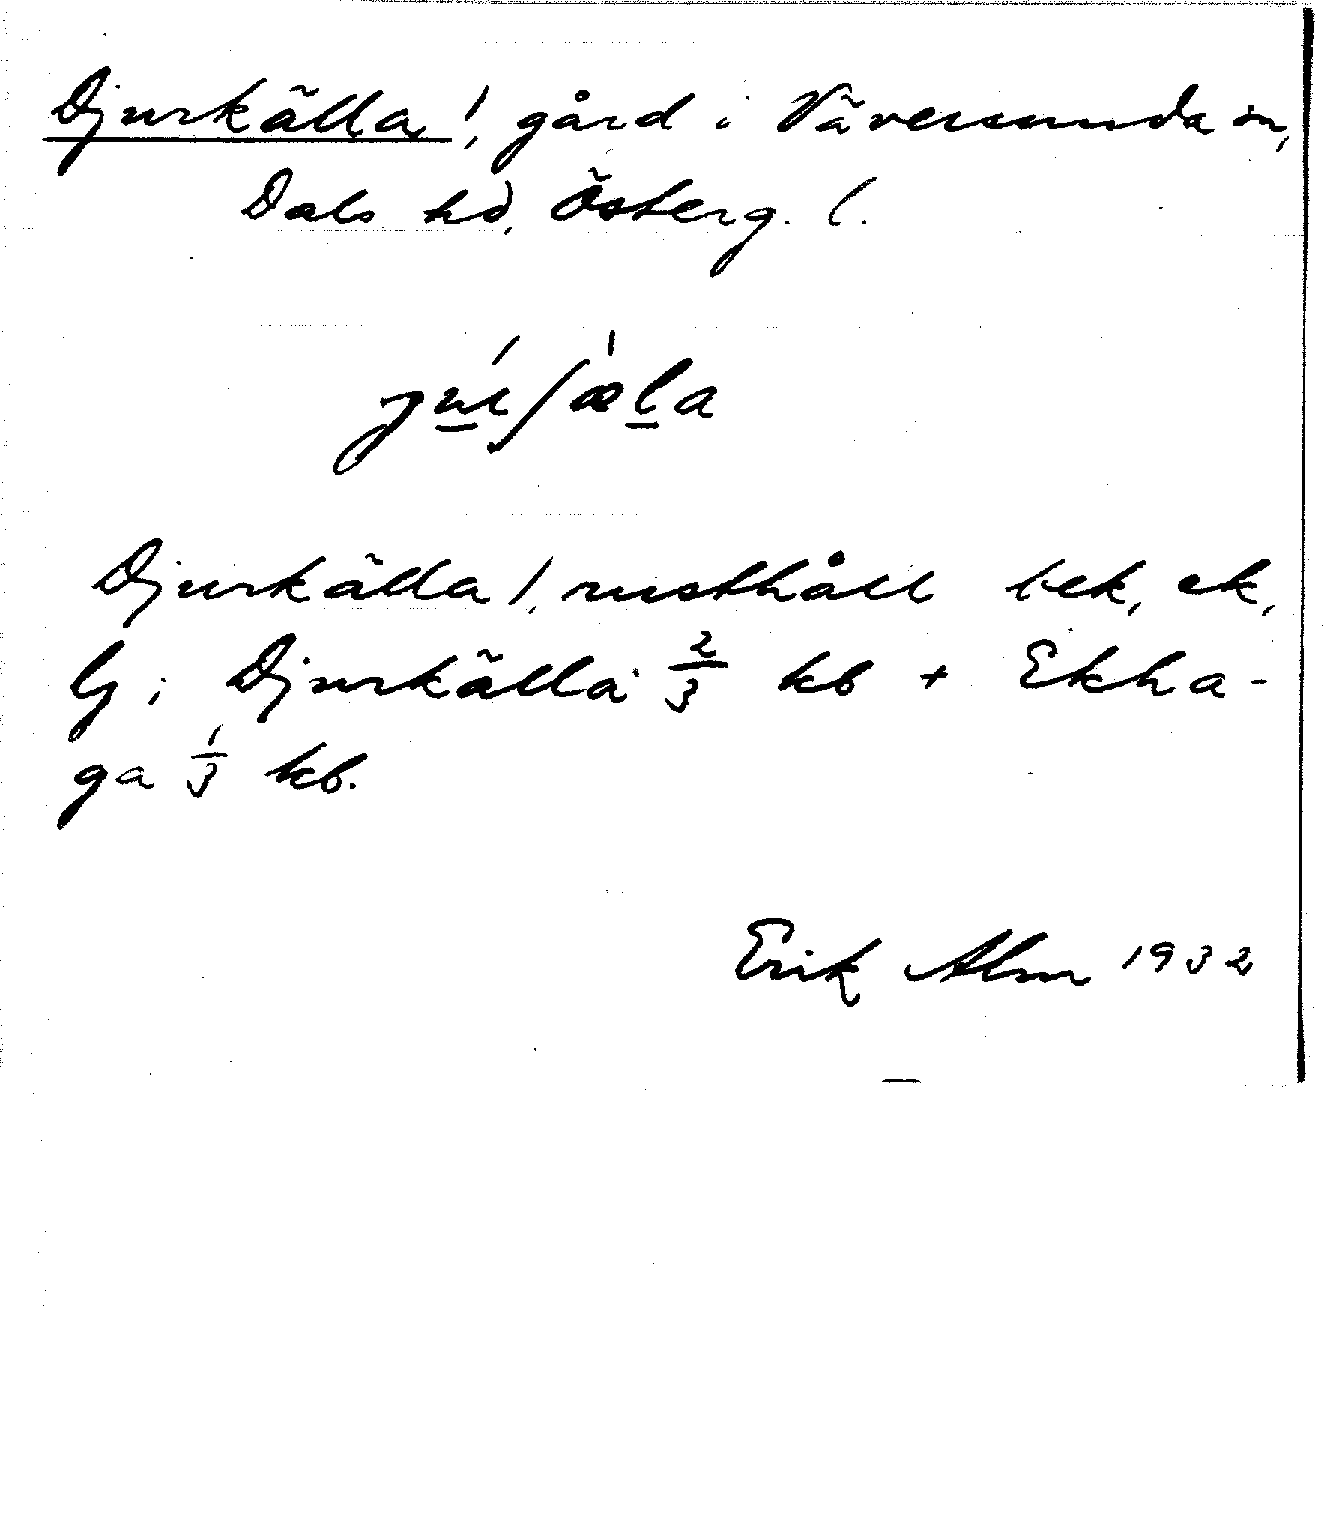 Djurkälla !, gård i Väversunda sn,
Dals hd, Österg. l.
Djurkälla !, rusthåll bek, ek,
G; Djurkälla 2/3 kb + Ekha-
ga 1/3 kb.
Erik Alm 1932